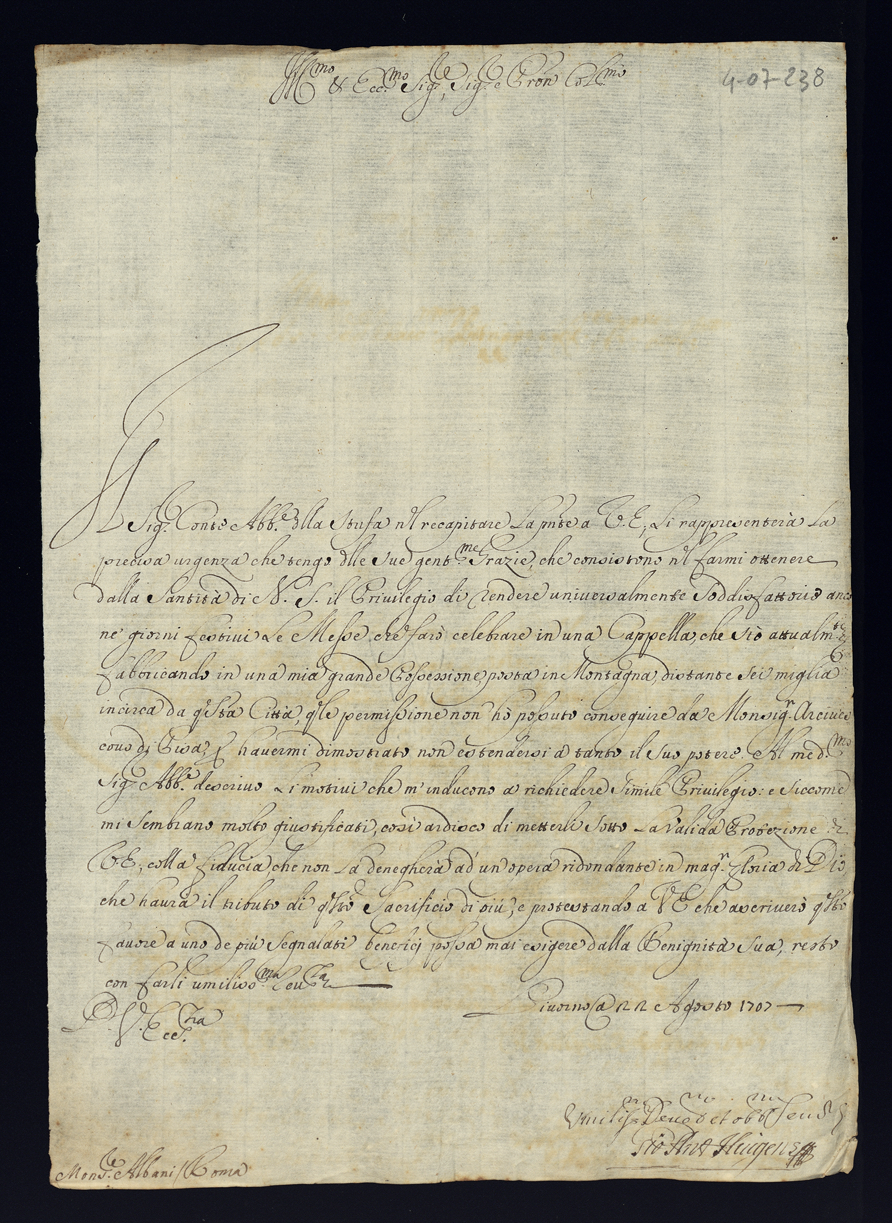 Ill.mo & Ecc.mo Sig.re, Sig.re e Pron Col.mo
4-07-238
Il Sig.r Conte Abb.e dlla Stufa nel recapitare la pnte a V.E., Li rappresenterà la
precisa urgenza che tengo dlle sue gent.me Grazie, che consistono nel farmi ottenere
dalla Santità di N. S. il Privilegio di rendere universalmente Soddisfattorie anco
ne' giorni festivi Le Messe che farò celebrare in una Cappella, che stò attualm.te
fabbricando in una mia grande Possessione posta in Montagna, distante sei miglia
incirca da q̃sta Città, q̃le permissione non hò possuto conseguire da Monsig.r Arcives=
covo di Pisa, p havermi dimostrato non estendersi a tanto il suo potere. Al med.mo
Sig.r Abb.e descrivo Li motivi che m'inducono a richiedere simile Privilegio: e siccome
mi sembrano molto giustificati, così ardisco di metterli sotto La valida Protezione di
V.E., colla fiducia, che non La denegherà ad un'opera ridondante in mag.r Gloria di Dio
che haurà il tributo di q̃sto Sacrificio di più; e protestando a V.E. che ascriverò q̃sto
favore a uno de più segnalati beneficj possa mai esigere dalla Benignità Sua, resto
con farli umiliss.ma Reu.za
D. V. Ecc.za
Livorno @ 22 Agosto 1707
Umiliss.mo Deuo.mo et obb.mo Seru.re
Gio Ant Huigens
Mons.re Albani / Roma